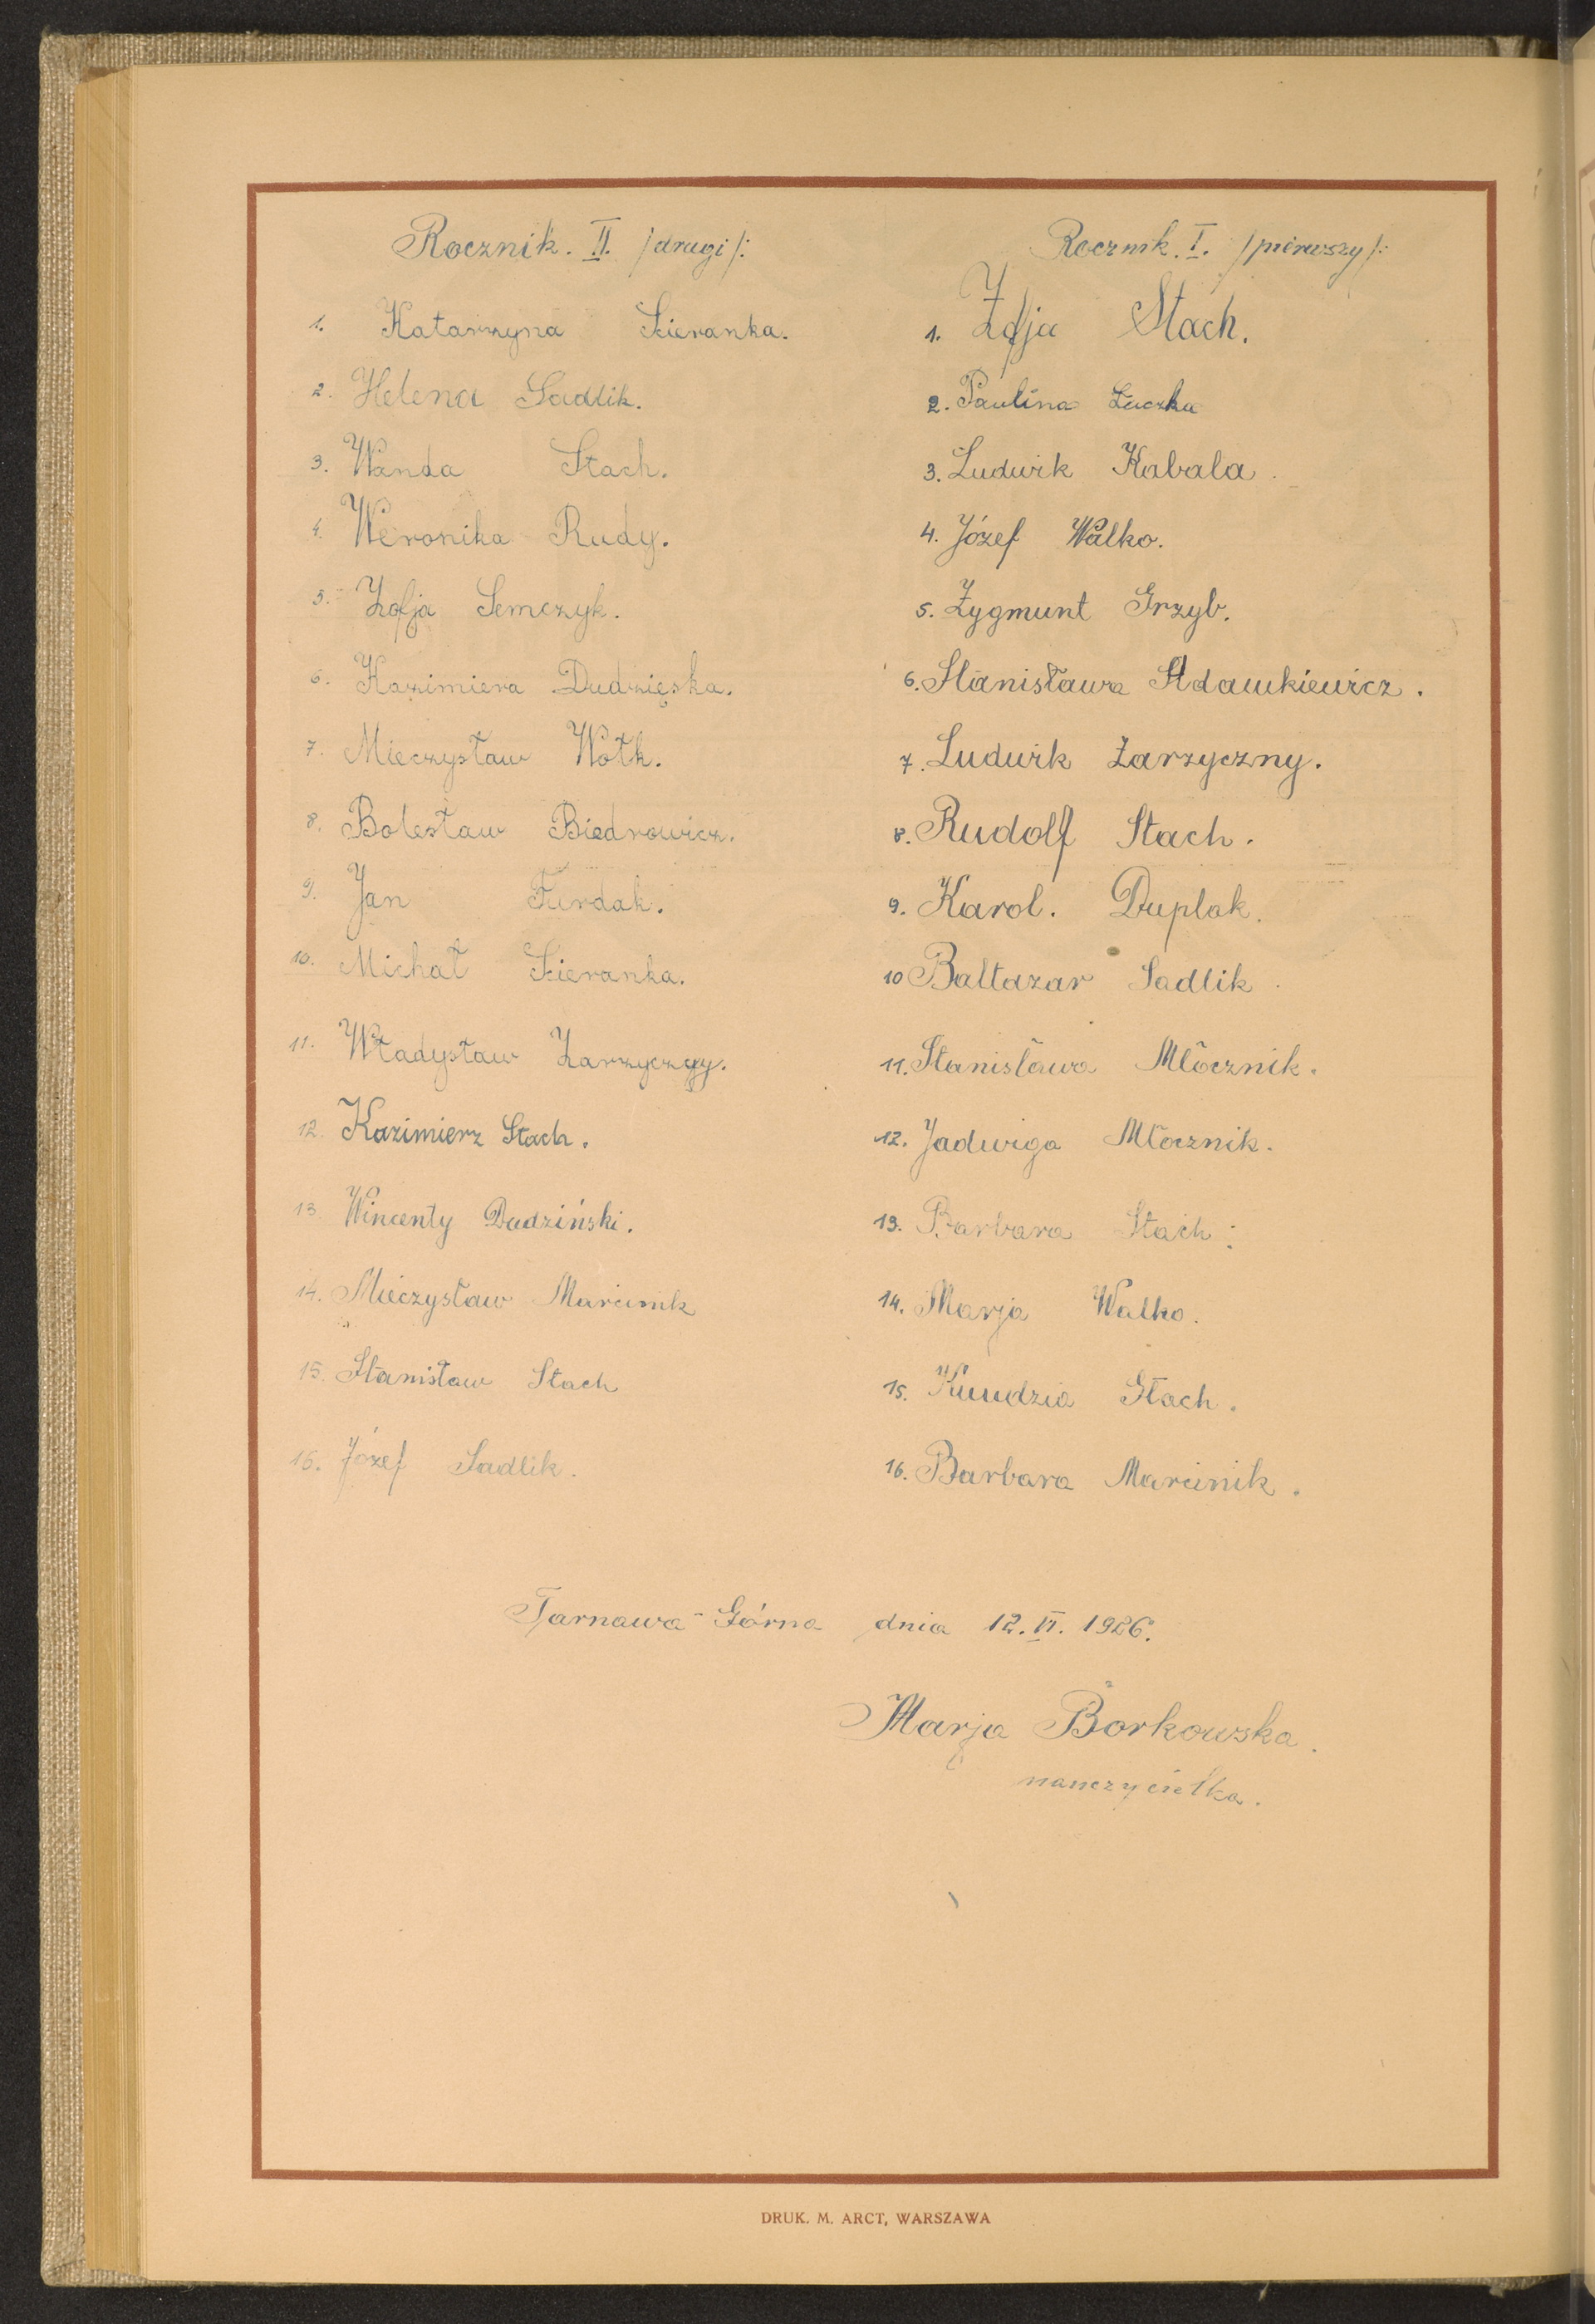 Rocznik. II. /drugi/:
1. Katarzyna Scieranka.
2. Helena Sadlik.
3. Wanda Stach.
4. Weronika Rudy.
5. Zofja Semczyk.
6. Kazimiera Dudzięska.
7. Mieczysław Wołk.
8. Bolesław Biedrowicz.
9. Jan Furdak.
10. Michał Scieranka.
11. Władysław Zarzyczny.
12. Kazimierz Stach.
13. Wincenty Dudziński.
14. Mieczysław Marcinik
15. Stanisław Stach
16. Józef Sadlik.
Rocznik. I. /pierwszy/:
1. Zofja Stach.
2. Paulina Łuczka
3. Ludwik Kabala.
4. Józef Walko.
5. Zygmunt Grzyb.
6. Stanisława Adamkiewicz.
7. Ludwik Zarzyczny.
8. Rudolf Stach.
9. Karol. Duplak.
10 Baltazar Sadlik.
11. Stanisława Młocznik.
12. Jadwiga Młocznik.
13. Barbara Stach.
14. Marja Walko.
15. Stach.
16. Barbara Marcinik.
Tarnawa-Górna dnia 12. VI. 1926.
Marja Borkowska.
nauczycielka.
DRUK. M. ARCT, WARSZAWA